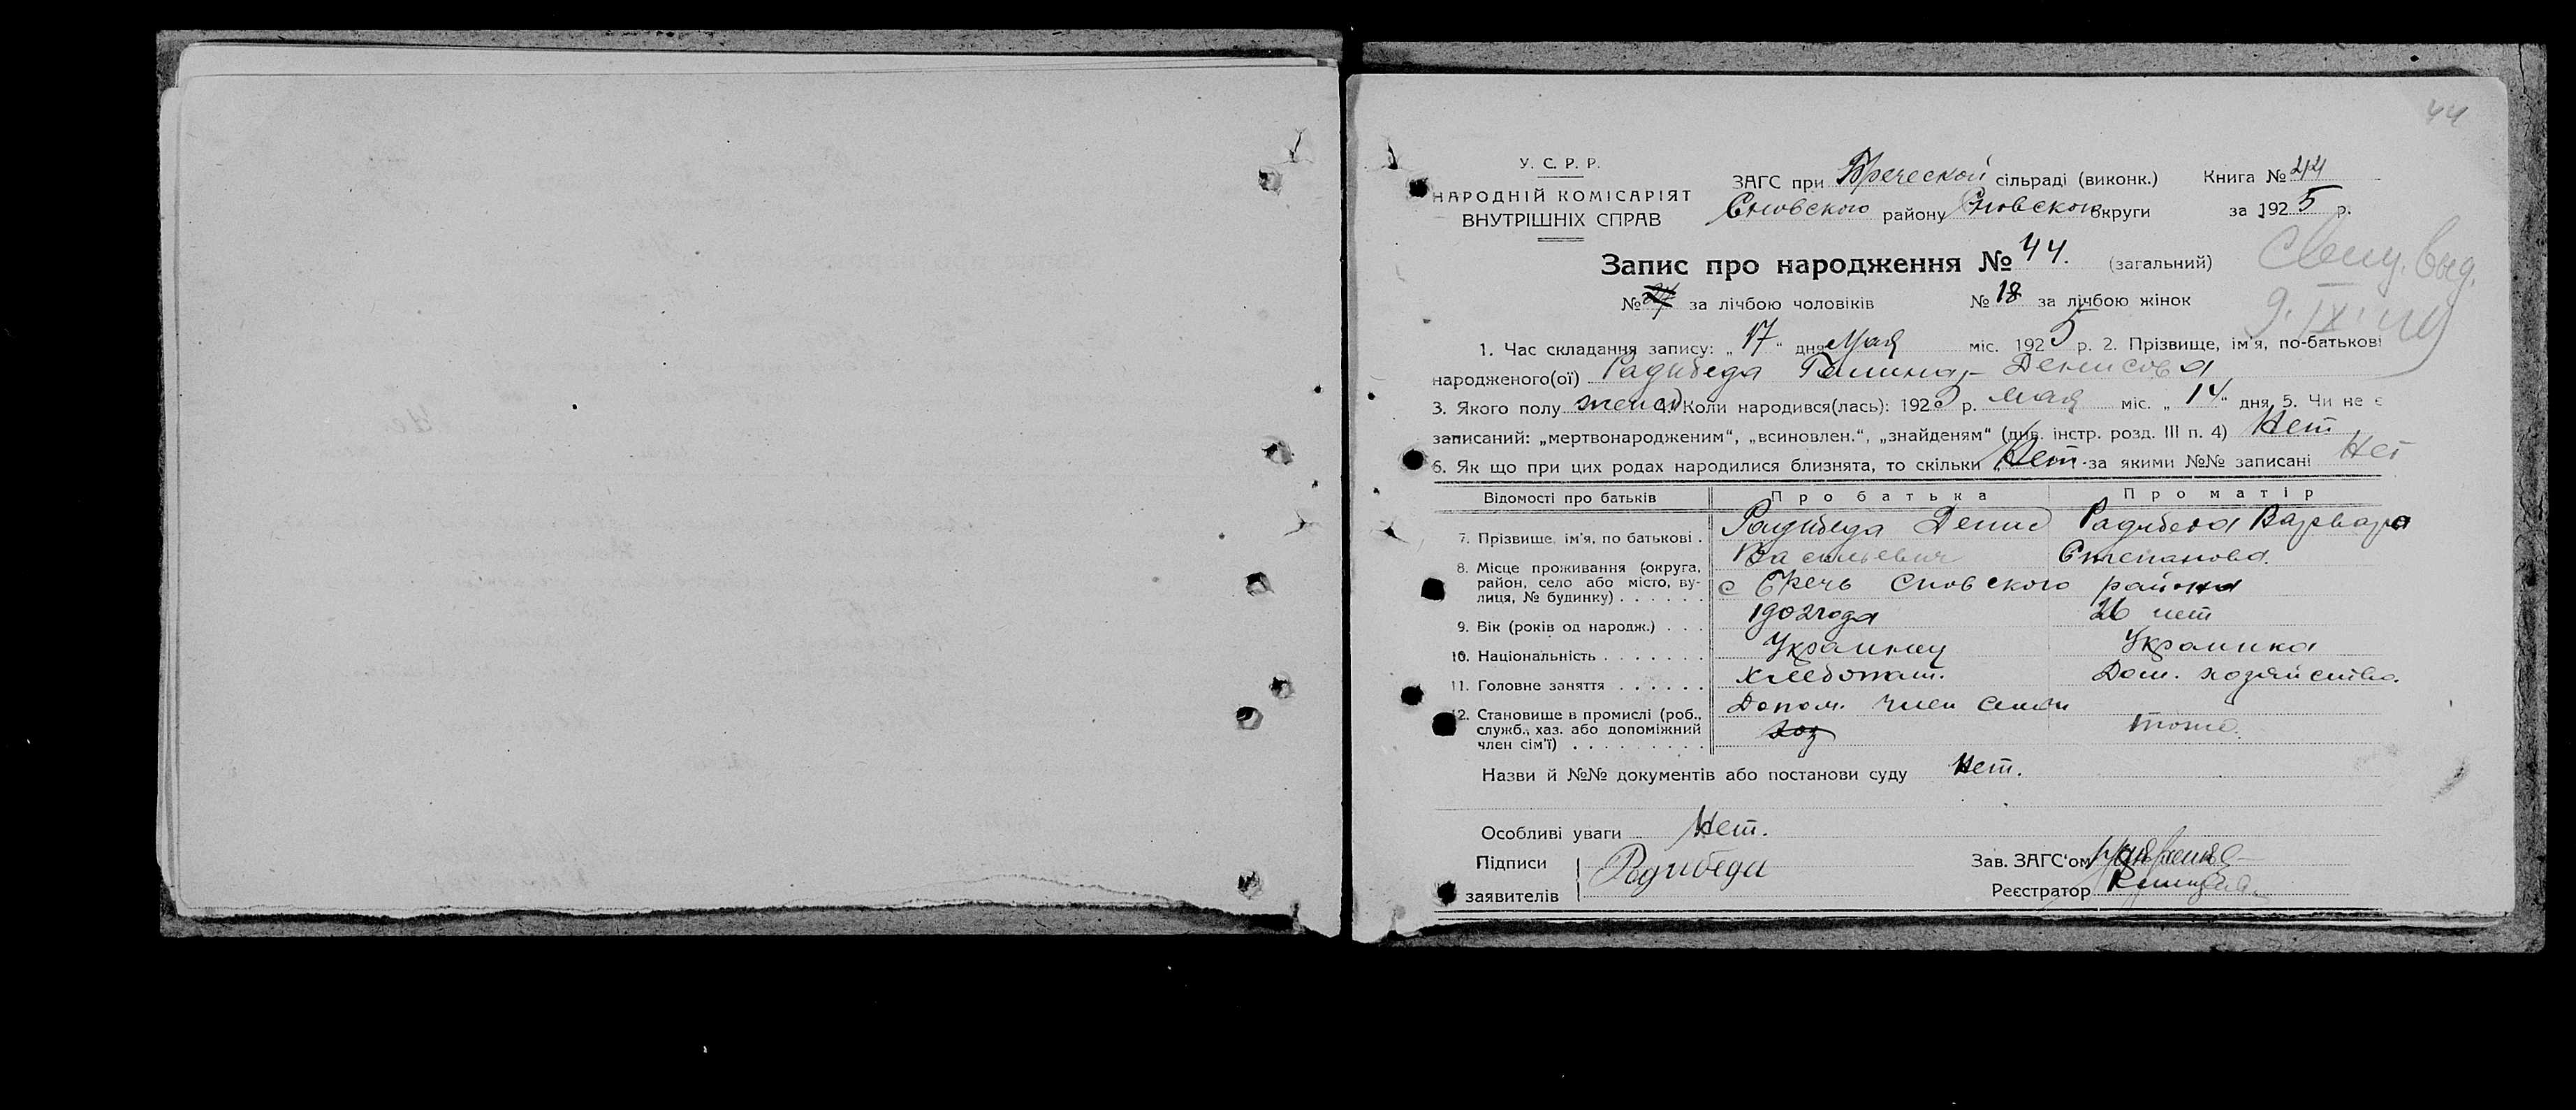 44
У. С. Р. Р.
НАРОДНІЙ КОМІСАРІЯТ
ВНУТРІШНІХ СПРАВ
ЗАГС при Бреческой сільраді (виконк.) Книга № 44
Сновского району Сновского округи за 1925 р.
Запис про народження № 44. (загальний)
Свид. выд.
9. IX.
№ за лічбою чоловіків № 18 за лічбою жінок
1. Час складання запису: „17“ дня Мая міс. 1925 р. 2. Прізвище, ім'я, по-батькові
народженого(ої) Радибеда Галина - Денисова
3. Якого полу женск 4. Коли народився(лась): 1925 р. мая міс. „14“ дня, 5. Чи не є
записаний: „мертвонародженим“, „всиновлен.“, „знайденям“ (див. інстр. розд. III п. 4) Нет
6. Як що при цих родах народилися близнята, то скільки Нет за якими №№ записані Нет
Відомості про батьків Про батька Про матір
7. Прізвище, ім'я, по батькові . Радибеда Денис Васильевич Радибеда Варвара Степанова.
8. Місце проживання (округа,
район, село або місто, ву-
лиця, № будинку) . . . . . . с Бречь Сновского района
9. Вік (років од народж.) . . . 1902 года 26 лет
10. Національність . . . . . . . Украинец Украинка
11. Головне заняття . . . . . . хлебопаш. Дом. хозяйство.
12. Становище в промислі (роб.,
служб., хаз. або допоміжний
член сім'ї) . . . . . . . . . Допом. член семьи тоже.
хоз
Назви й №№ документів або постанови суду Нет.
Особливі уваги Нет.
Підписи
заявителів Радибеда
Зав. ЗАГС'ом
Реєстратор